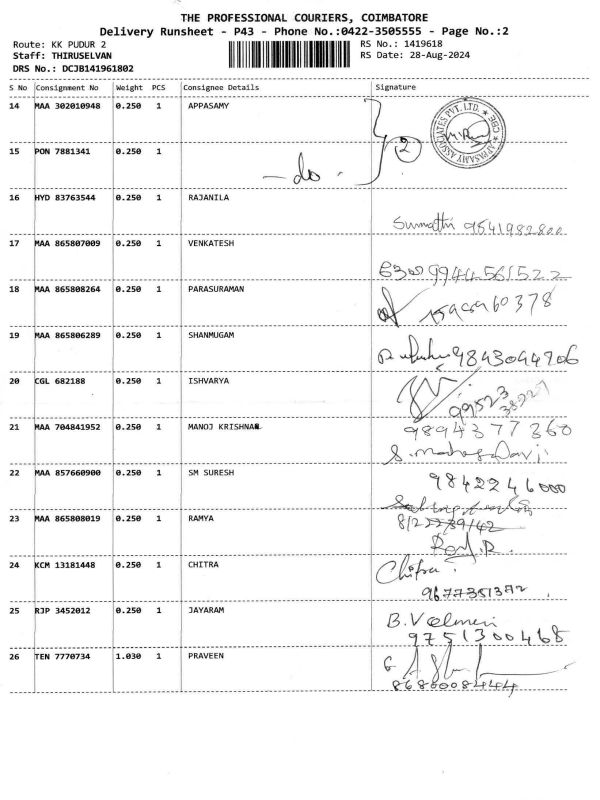 THE PROFESSIONAL COURIERS, COIMBATORE
Delivery Runsheet - P43 - Phone No.:0422-3505555 - Page No.:2
Route: KK PUDUR 2 RS No.: 1419618
Staff: THIRUSELVAN RS Date: 28-Aug-2024
DRS No.: DCJB141961802
S No Consignment No Weight PCS Consignee Details Signature
14 MAA 302010948 0.250 1 APPASAMY
APPASAMY ASSOCIATES PVT. LTD. * CBE *
2
15 PON 7881341 0.250 1
- do .
16 HYD 83763544 0.250 1 RAJANILA
Sumathi 9541982800
17 MAA 865807009 0.250 1 VENKATESH
9944561522
18 MAA 865808264 0.250 1 PARASURAMAN
19 MAA 865806289 0.250 1 SHANMUGAM
9843044706
20 CGL 682188 0.250 1 ISHVARYA
99523
38227
21 MAA 704841952 0.250 1 MANOJ KRISHNA
9894377360
22 MAA 857660900 0.250 1 SM SURESH
9842246000
23 MAA 865808019 0.250 1 RAMYA
24 KCM 13181448 0.250 1 CHITRA
Chitra
9677351372
25 RJP 3452012 0.250 1 JAYARAM
9751300468
26 TEN 7770734 1.030 1 PRAVEEN
8680084444